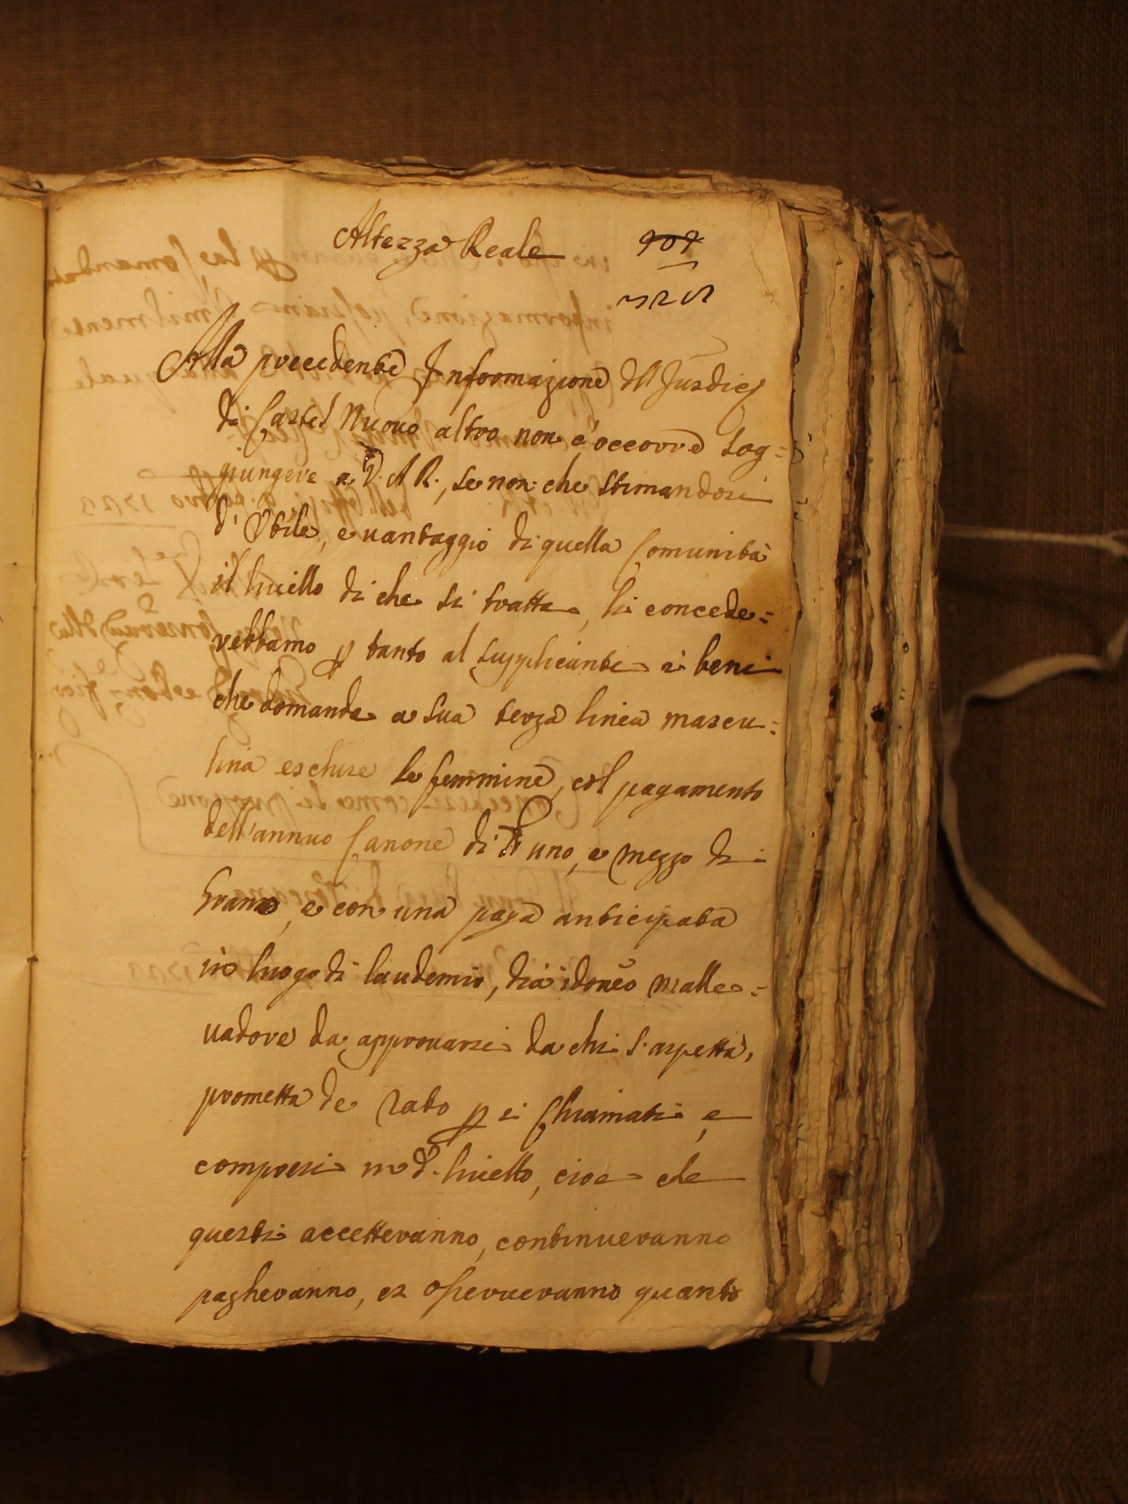 Altezza Reale
Alla precedente Informazione dell Jusdic.
di Castel Nuovo altro non c'occorre sog=
giungere a V: A R., se non che stimandosi
d'Utile, e vantaggio di quella Comunità
il livello di che si tratta, li concede=
rebbamo p tanto al supplicante i beni
che domanda a sua terza linea mascu=
lina escluse le femmine, col pagamento
dell'annuo Canone di uno, e mezzo di
Grano, e con una paga anticipata
in luogo di laudemio, dia idoneo malle=
vadore da approvarsi da chi s'aspetta,
prometta de rato p i Chiamati e
compresi in d. livello, cioe che
questi accetteranno, continueranno
pagheranno, et osserveranno quanto